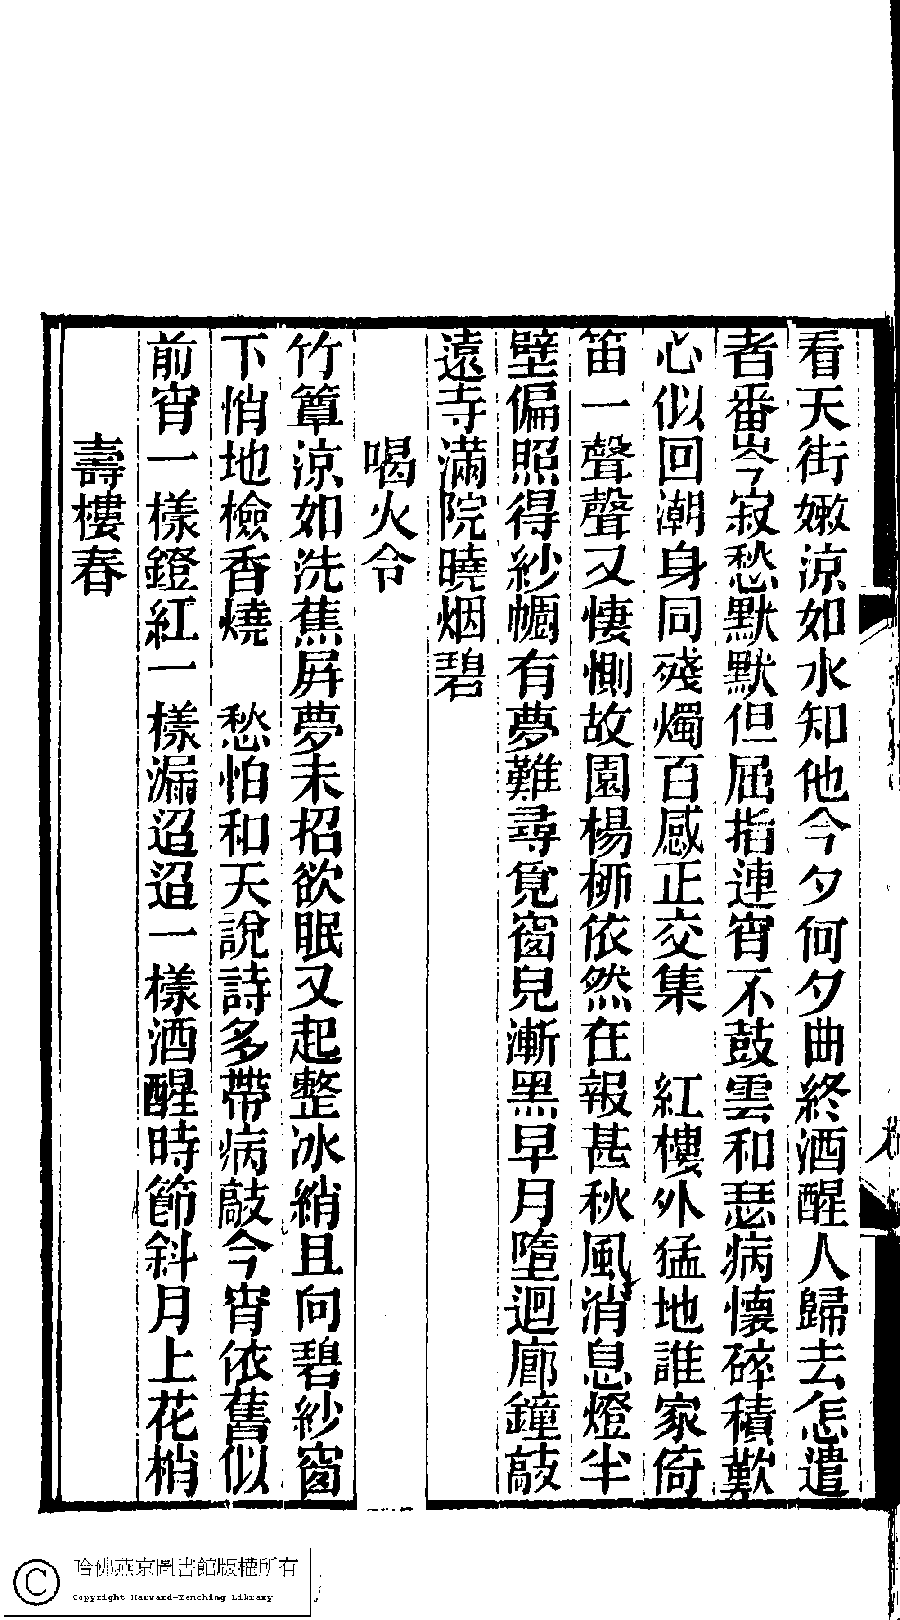 看天街嫩涼如水知他今夕何夕曲終酒醒人歸去怎遣
者番岑寂愁默默但屈指連宵不鼓雲和瑟病懷碎積歎
心似回潮身同殘燭百感正交集　紅樓外猛地誰家倚
笛一聲聲又悽惻故園楊柳依然在報甚秋風消息燈半
壁偏照得紗幮有夢難尋覓窗兒漸黑早月墮迴廊鐘敲
遠寺滿院曉烟碧
喝火令
竹簟涼如洗焦屛夢未招欲眠又起整冰綃且向碧紗窗
下悄地檢香燒　愁怕和天說詩多帶病敲今宵依舊似
前宵一樣鐙紅一樣漏迢迢一樣酒醒時節斜月上花梢
壽樓春
哈佛燕京圖書館版權所有
Copyright Harvard-Yenching Library